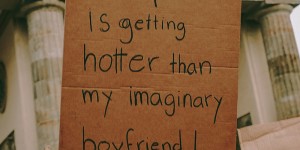 Is getting
hotter than
my imaginary
boyfriend!